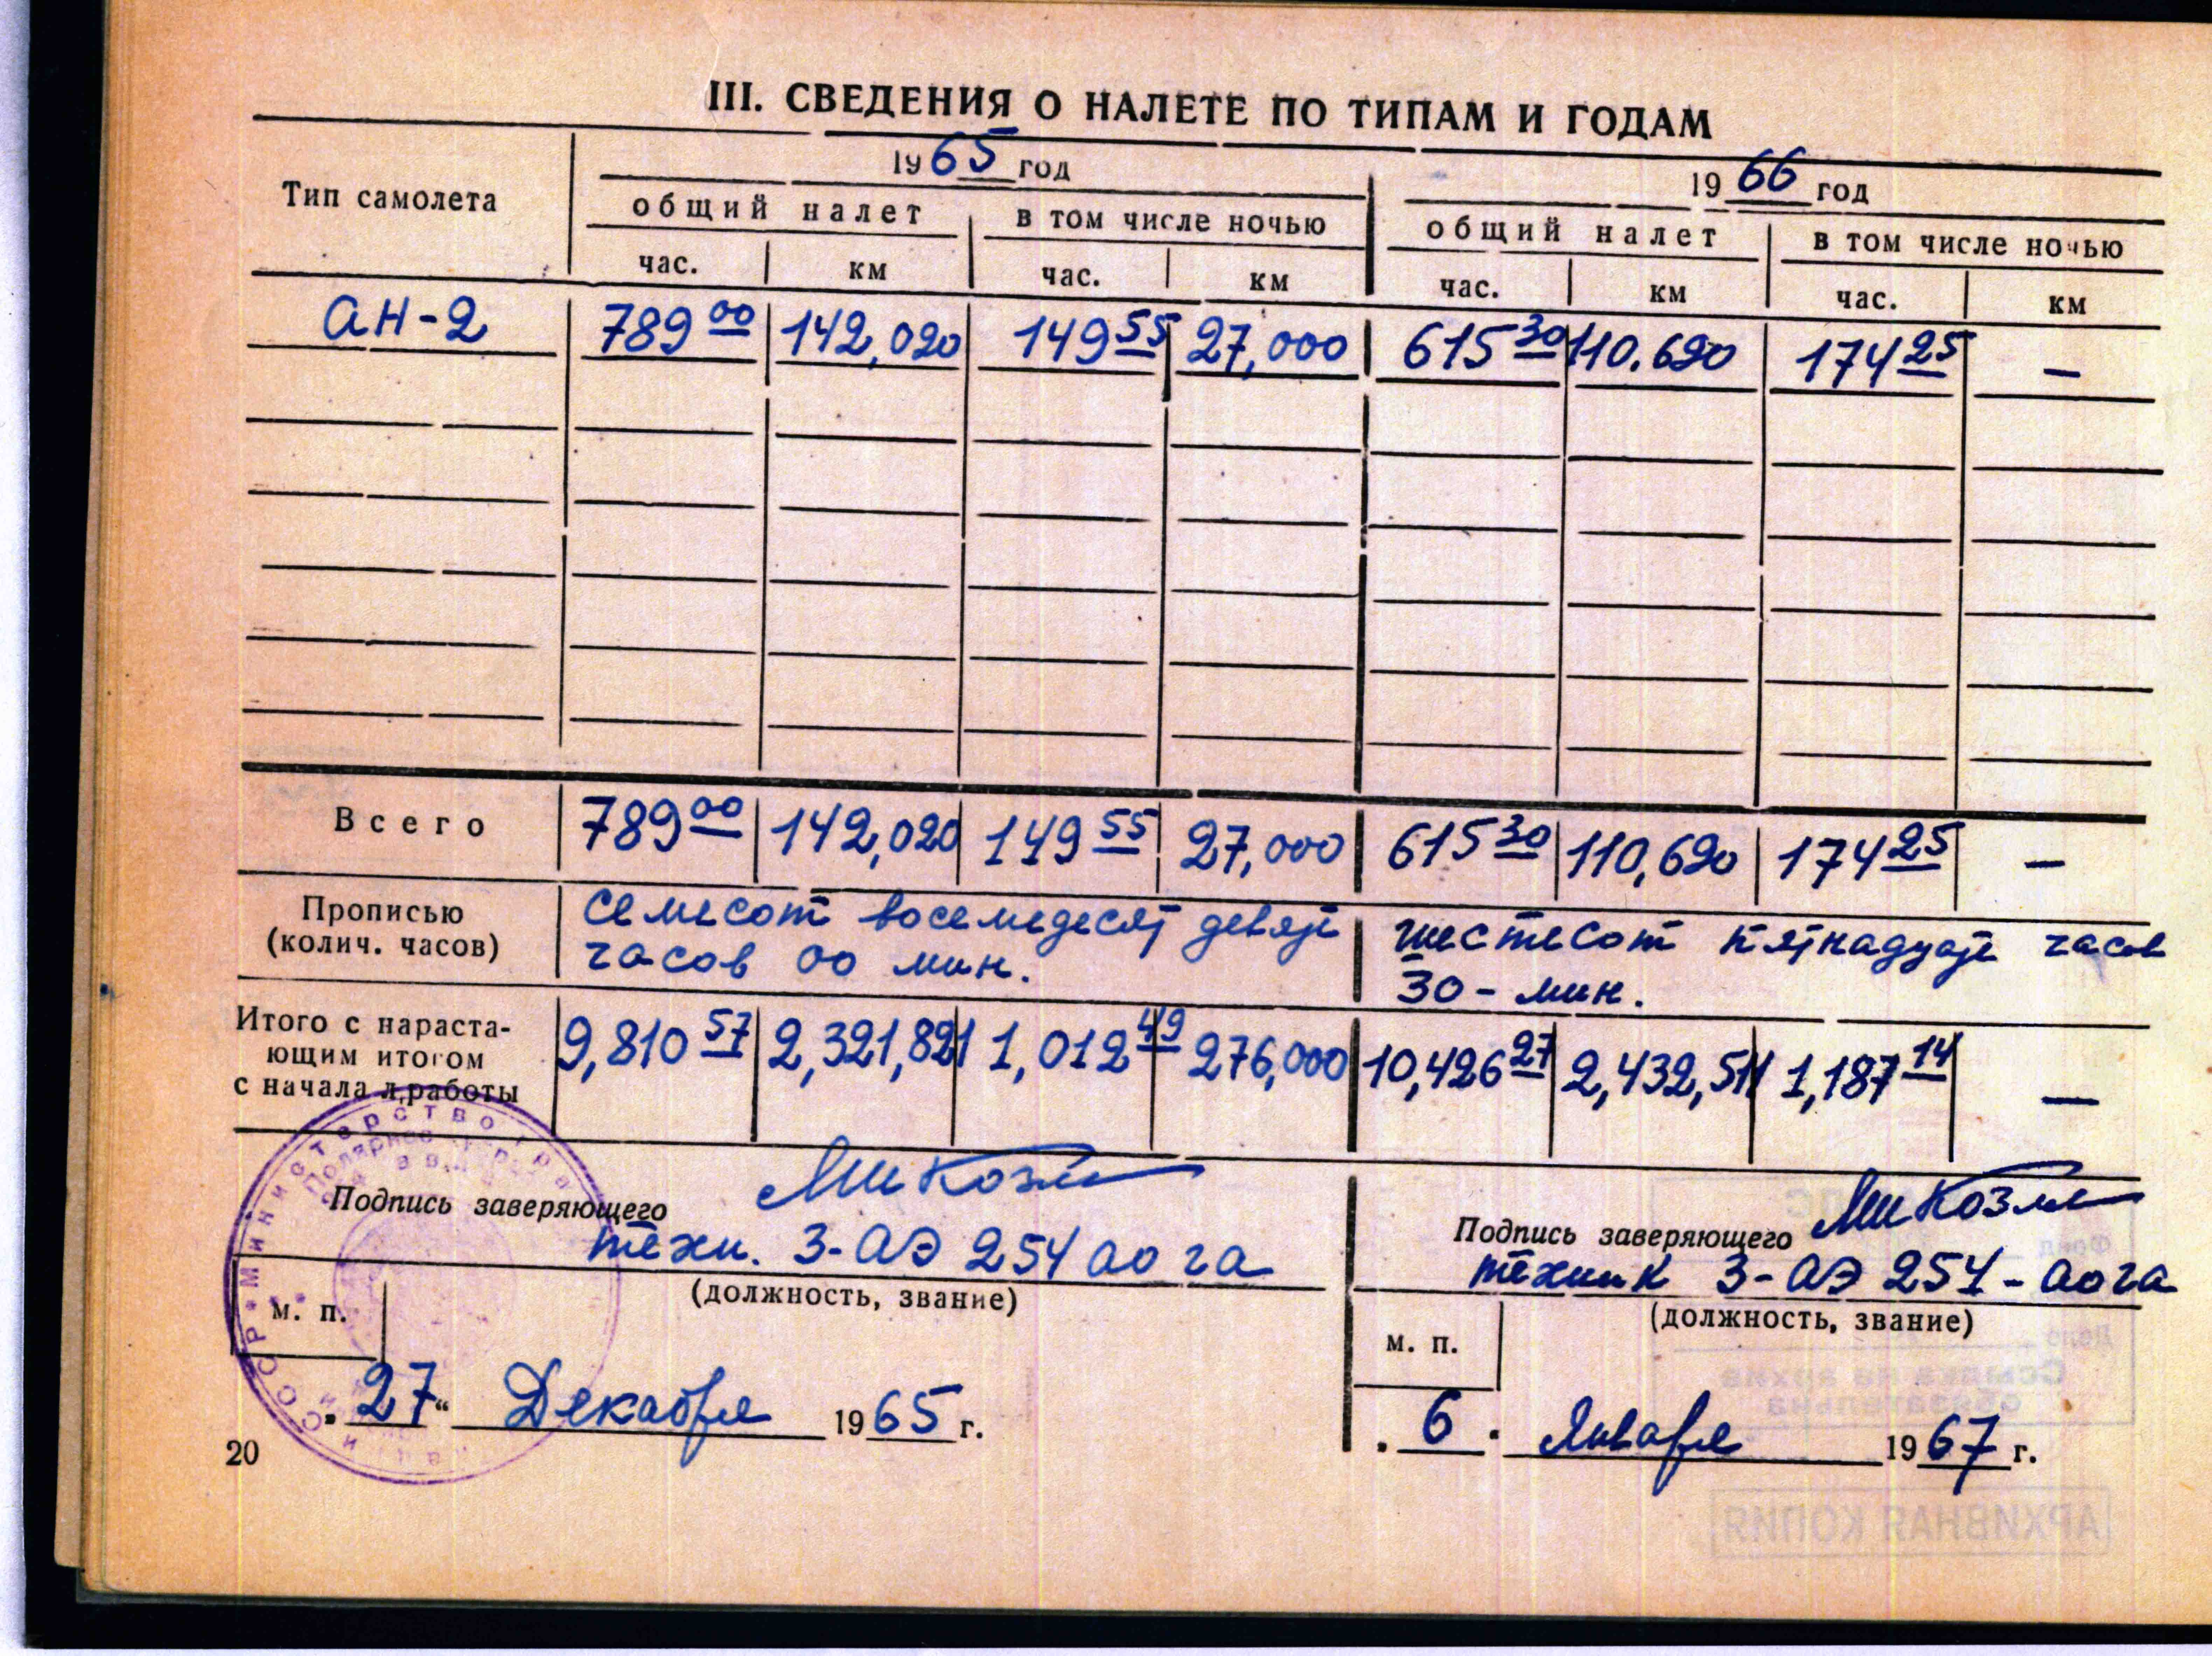 III. СВЕДЕНИЯ О НАЛЕТЕ ПО ТИПАМ И ГОДАМ
Тип самолета
1965 год
1966 год
общий налет
в том числе ночью
общий налет
в том числе ночью
час. км час. км час. км час. км
АН-2 789 00 142,020 149 55 27,000 615 30 110.690 174 25 —
Всего 789 00 142,020 149 55 27,000 615 30 110,690 174 25 —
Прописью
(колич. часов)
семьсот восемьдесят девять
часов 00 мин.
шестьсот пятнадцать часов
30 - мин.
Итого с нараста-
ющим итогом
с начала л.работы
9,810 57 2,321,821 1,012 49 276,000 10,426 27 2,432,511 1,187 14 —
Подпись заверяющего
техн. 3-АЭ 254 АО ГА
(должность, звание)
м. п.
„27“ Декабря 1965 г.
Подпись заверяющего
техник 3-АЭ 254-АО ГА
(должность, звание)
м. п.
6 Января 1967 г.
20
Министерство
СССР
АРХИВНАЯ КОПИЯ
Фонд
Дело
Ссылка на архив
обязательна